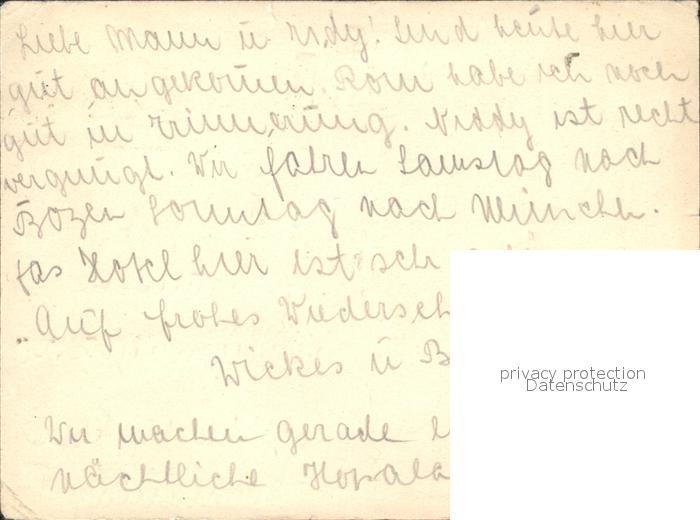 Liebe Mann u Niddy! Sind heute hier
gut angekommen. Rom habe ich noch
gut in Erinnerung. Niddy ist recht
vergnügt. Wir fahren Samstag nach
Bozen Sonntag nach München.
Das Hotel hier ist sehr
"Auf frohes Wiederseh
Wickes u B
Wir machen gerade e
nächtliche
privacy protection
Datenschutz